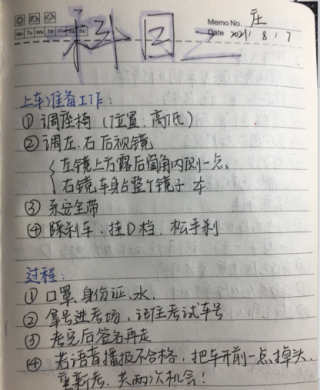 Memo No. 庄
Mo Tu We Th Fr Sa Su
Date 2021 8 17
科目二
上车准备工作:
① 调座椅(位置、高低)
② 调左、右后视镜
左镜上方露后窗角内侧一点、
右镜车身占整个镜子
③ 系安全带
④ 踩刹车、挂D档、松手刹
过程:
① 口罩、身份证、水、
② 拿号进考场,记住考试车号
③ 考完后签名再走
④ 若语音播报不合格,把车开前一点掉头、
重新考、共两次机会!